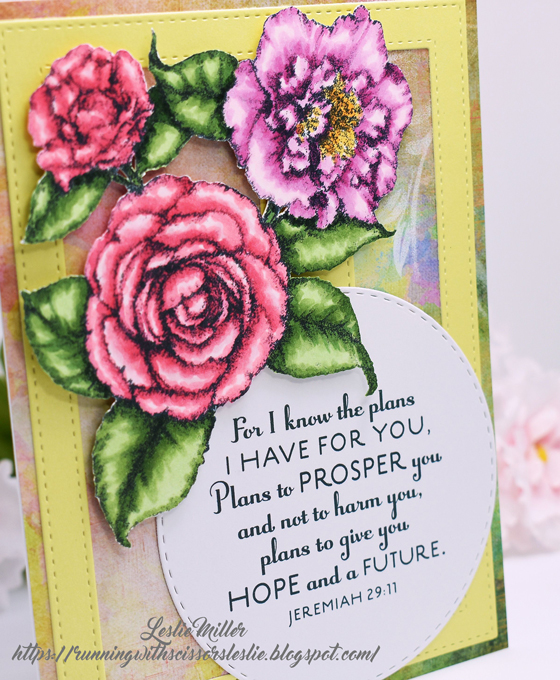 For I know the plans
I HAVE FOR YOU,
Plans to PROSPER you
and not to harm you,
plans to give you
HOPE and a FUTURE.
JEREMIAH 29:11
Leslie Miller
https://runningwithscissorsleslie.blogspot.com/